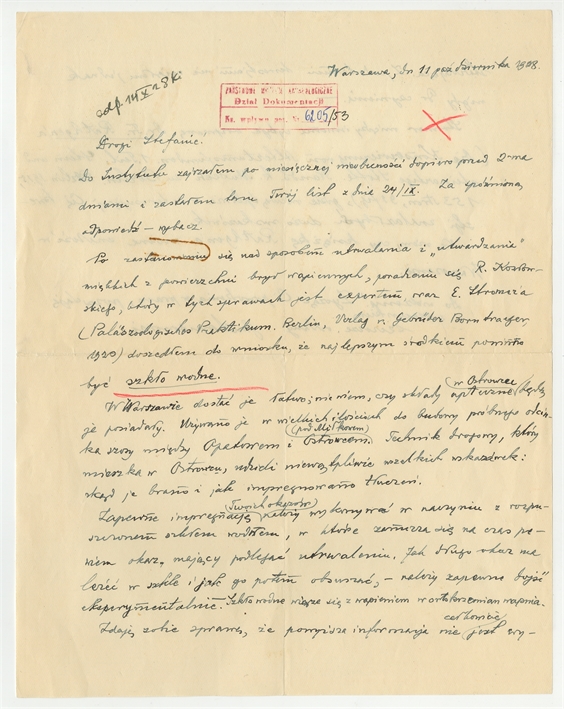 Warszawa, dn 11 października 1928.
odp. 14 X 28 Ki
PAŃSTWOWE MUZEUM ARCHEOLOGICZNE
Dział Dokumentacji
Nr. wpływu 6205/53
Drogi Stefanie.
Do Instytutu zajrzałem po miesięcznej nieobecności dopiero przed 2-ma
dniami i zastałem tam Twój list z dnia 24/IX. Za spóźnioną
odpowiedź – wybacz.
Po zastanowieniu się nad sposobem utrwalania i „utwardzania"
miękkich z powierzchni brył wapiennych, poradzeniu się R. Kozłow-
skiego, który w tych sprawach jest expertem oraz E. Stromera
(Paläozoologisches Praktikum. Berlin, Verlag v. Gebrüder Borntraeger,
1920) doszedłem do wniosku, że najlepszym środkiem powinno
być szkło wodne.
W Warszawie dostać je łatwo; nie wiem, czy składy apteczne w Ostrowcu będą
je posiadały. Używano je w wielkich ilościach do budowy próbnego odcin-
ka szosy między Opatowem i Ostrowcem (pod Miłkowem). Technik drogowy, który
mieszka w Ostrowcu, udzieli niewątpliwie wszelkich wskazówek:
skąd je brano i jak impregnowano tłuczeń.
Zapewne impregnację Twoich okazów należy wykonywać w naczyniu z rozpu-
szczonem szkłem wodnem, w które zanurza się na czas pe-
wien okaz, mający podlegać utrwaleniu. Jak długo okaz ma
leżeć w szkle i jak go potem obsuszać, – należy zapewne dojść
eksperymentalnie. Szkło wodne wiąże się z wapieniem w ortokrzemian wapnia.
Zdaję sobie sprawę, że powyższa informacja nie jest całkowicie wy-